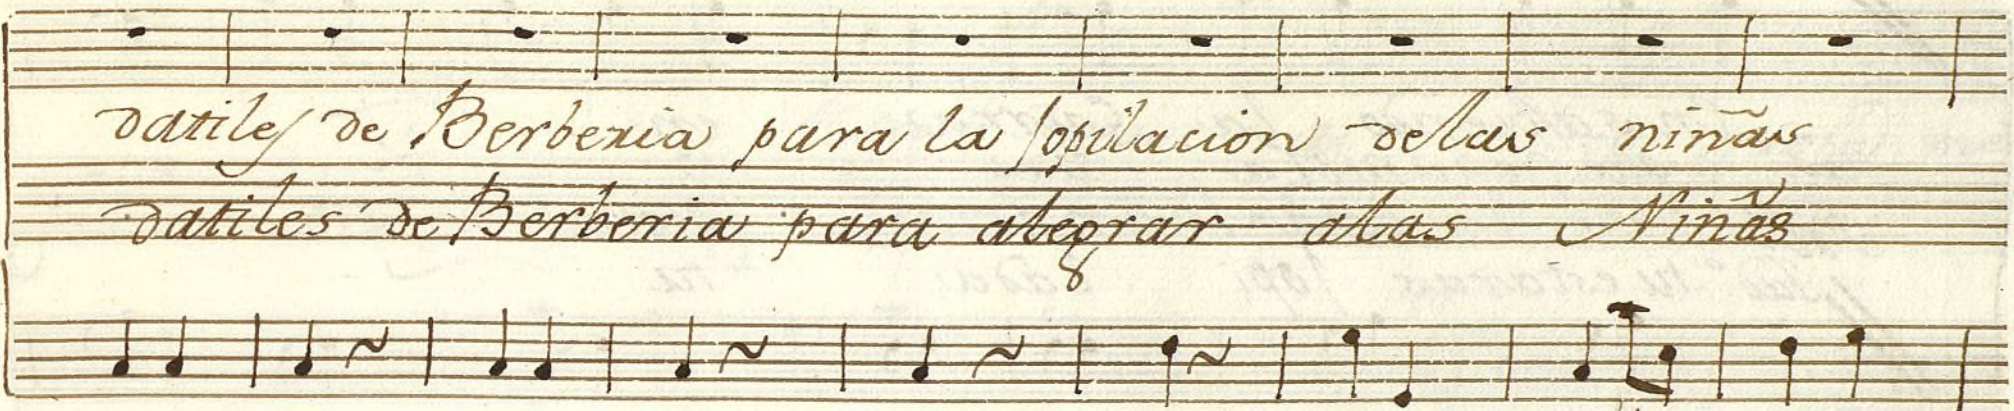 datiles de Berberia para la sopilacion delas niñas
datiles de Berberia para alegrar alas Niñas